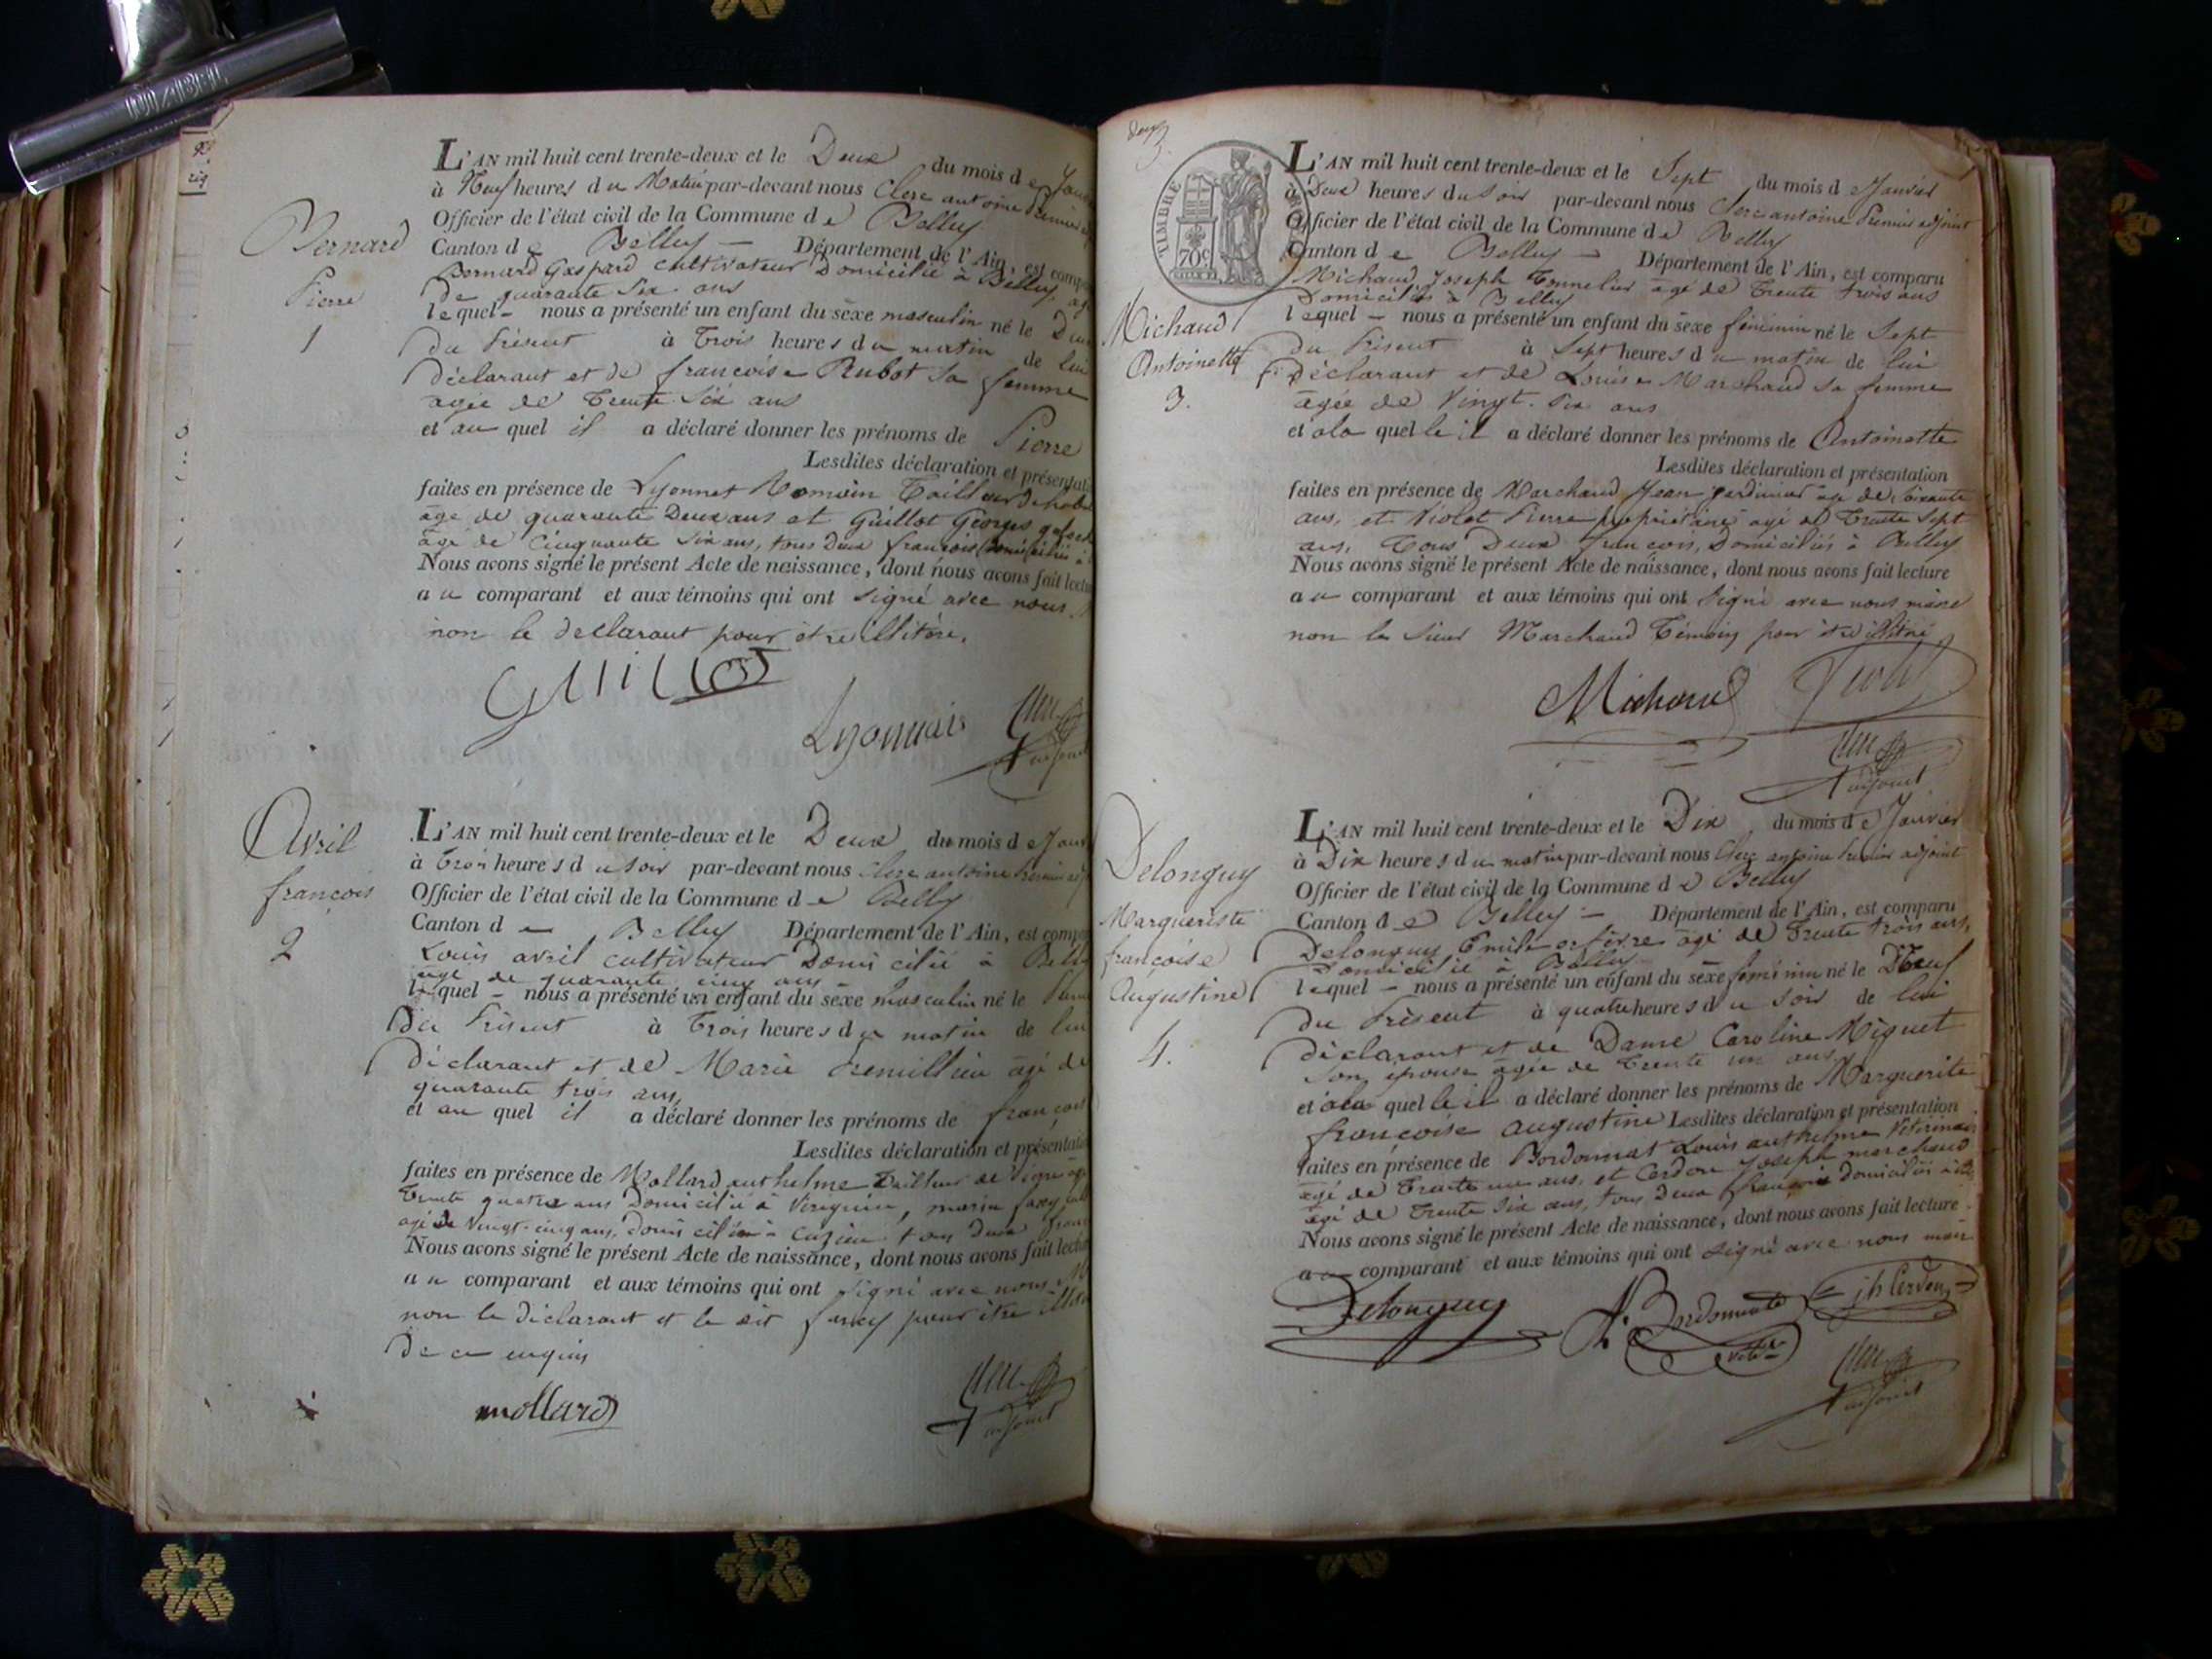 Bernard
Pierre
1
L'AN mil huit cent trente-deux et le Deux du mois de
à Neuf heures du Matin par-devant nous Clerc antoine
Officier de l'état civil de la Commune de Belley
Canton de Belley — Département de l'Ain, est
Bernard Gaspard cultivateur Domicilié à Belley
de quarante Six ans
lequel — nous a présenté un enfant du sexe masculin né le
du Présent à Trois heures du matin de lui
déclarant et de françoise Rubot sa femme
agée de Trente Six ans
et au quel il a déclaré donner les prénoms de Pierre
Lesdites déclaration et
faites en présence de Lyonnet Romain Tailleur
agé de quarante Deux ans et Guillot Georges
agé de Cinquante Six ans, tous Deux françois
Nous avons signé le présent Acte de naissance, dont nous avons fait
au comparant et aux témoins qui ont signé avec nous
non le declarant pour être illitéré.
Guillot
Lyonnais
adjoint
Avril
françois
2
L'AN mil huit cent trente-deux et le Deux du mois de
à Trois heures du soir par-devant nous Clerc antoine
Officier de l'état civil de la Commune de Belley
Canton de Belley Département de l'Ain, est
Louis avril cultivateur Domicilié à
agé de quarante cinq ans
lequel — nous a présenté un enfant du sexe masculin né le
du Présent à Trois heures du matin de lui
déclarant et de Marie agé de
quarante trois ans,
et au quel il a déclaré donner les prénoms de françois
Lesdites déclaration et
faites en présence de Mollard anthelme Tailleur de
Trente quatre ans Domicilié à
agé de Vingt-cinq ans, domicilié à tous Deux
Nous avons signé le présent Acte de naissance, dont nous avons fait
au comparant et aux témoins qui ont signé avec nous
non le déclarant et le dit pour être
De ce enquis
mollard
adjoint
TIMBRE
70c
Michaud
Antoinette
3.
L'AN mil huit cent trente-deux et le Sept du mois de Janvier
à Deux heures du soir par-devant nous Clerc antoine Premier adjoint
Officier de l'état civil de la Commune de Belley
Canton de Belley — Département de l'Ain, est comparu
Michaud Joseph Tonnelier agé de Trente trois ans
Domicilié à Belley
lequel — nous a présenté un enfant du sexe féminin né le Sept
du Présent à Sept heures du matin de lui
déclarant et de Louise Marchand sa femme
agée de Vingt-Six ans
et a la quelle il a déclaré donner les prénoms de Antoinette
Lesdites déclaration et présentation
faites en présence de Marchand Jean jardinier agé de Soixante
ans, et Violet Pierre propriétaire agé de Trente Sept
ans, Tous Deux françois, Domiciliés à Belley
Nous avons signé le présent Acte de naissance, dont nous avons fait lecture
au comparant et aux témoins qui ont signé avec nous
non le Sieur Marchand Témoin pour être illitéré
Michaud
adjoint
Delonguy
Marguerite
françoise
Augustine
4.
L'AN mil huit cent trente-deux et le Dix du mois de Janvier
à Dix heures du matin par-devant nous Clerc antoine Premier adjoint
Officier de l'état civil de la Commune de Belley
Canton de Belley — Département de l'Ain, est comparu
Delonguy Emile orfèvre agé de Trente trois ans,
Domicilié à Belley
lequel — nous a présenté un enfant du sexe féminin né le Neuf
du Présent à quatre heures du soir de lui
déclarant et de Dame Caroline Miguet
Son épouse agée de Trente un ans
et a la quelle il a déclaré donner les prénoms de Marguerite
françoise augustine Lesdites déclaration et présentation
faites en présence de Bordonnat Louis anthelme Vétérinaire
agé de Trente un ans, et Cerdon Joseph marchand
agé de Trente Six ans, tous Deux françois domiciliés à
Nous avons signé le présent Acte de naissance, dont nous avons fait lecture
au comparant et aux témoins qui ont signé avec nous
Delonguy
jh Cerdon
adjoint